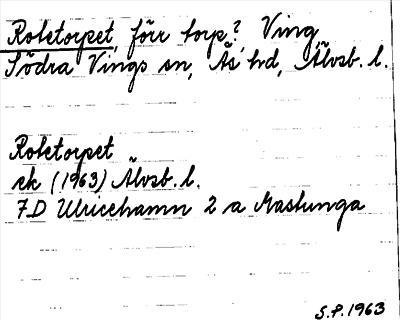 Roletorpet, förr torp? Ving,
Södra Vings sn, Ås hd, Älvsb. l.
Roletorpet
ek (1963) Älvsb. l.
7D Ulricehamn 2 a Maslunga
S.P. 1963